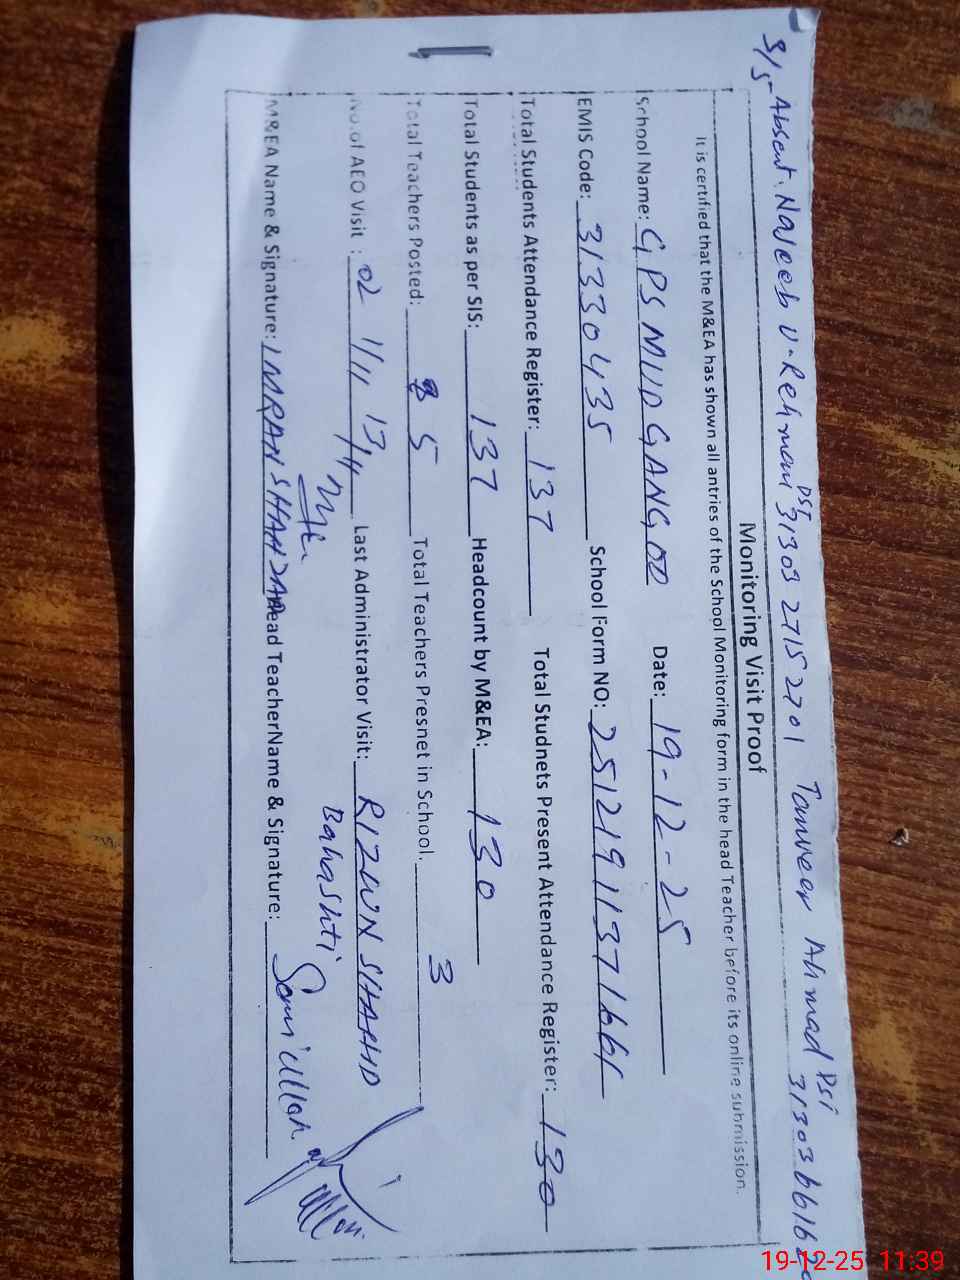 3/5 Absent. Naveeb U-Rehman PST 31303 2715 2701 Tanveer Ahmad PSi 31303 6616 20
Monitoring Visit Proof
It is certified that the M&EA has shown all antries of the School Monitoring form in the head Teacher before its online submission.
School Name: GPS MUD GANG OD Date: 19-12-25
EMIS Code: 31330435 School Form NO: 25121911371661
Total Students Attendance Register: 137 Total Studnets Present Attendance Register: 130
Total Students as per SIS: 137 Headcount by M&EA: 130
Total Teachers Posted: 5 Total Teachers Presnet in School. 3
No.of AEO Visit : 02 1/11 13/11 Last Administrator Visit: RIZWN SHAHID
Bahashti
M&EA Name & Signature: IMRAN SHAHZAD Head TeacherName & Signature: Samiullah
19-12-25 11:39